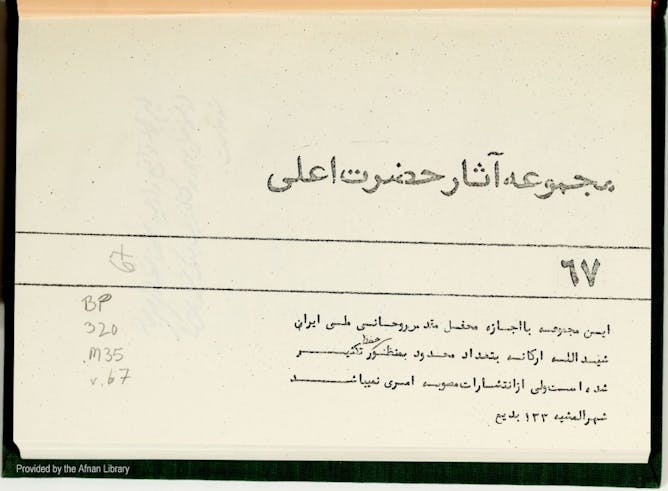 مجموعه آثار حضرت اعلی
٦٧
67
BP
320
.M35
v.67
این مجموعه با اجازه محفل مقدس روحانی ملی ایران
شیدالله ارکانه بتعداد محدود بمنظور حفظ تکثیر
شده است ولی از انتشارات مصوبه امری نمیباشد
شهرالمشیه ۱۳۳ بدیع
Provided by the Afnan Library